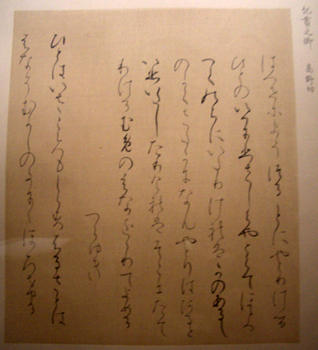 紀貫之卿　高野切
はつせにまうつることにやとりける
ひとのいへにひさしくやとらてほと
へてのちにいたれりけれはかのあるし
のかくさたかになんやとりはあると
いひいたしたりけれはそこにたて
りけるむめのはなををりてよめる
つらゆき
ひとはいさこゝろもしらすふるさとは
はなそむかしのかににほひける